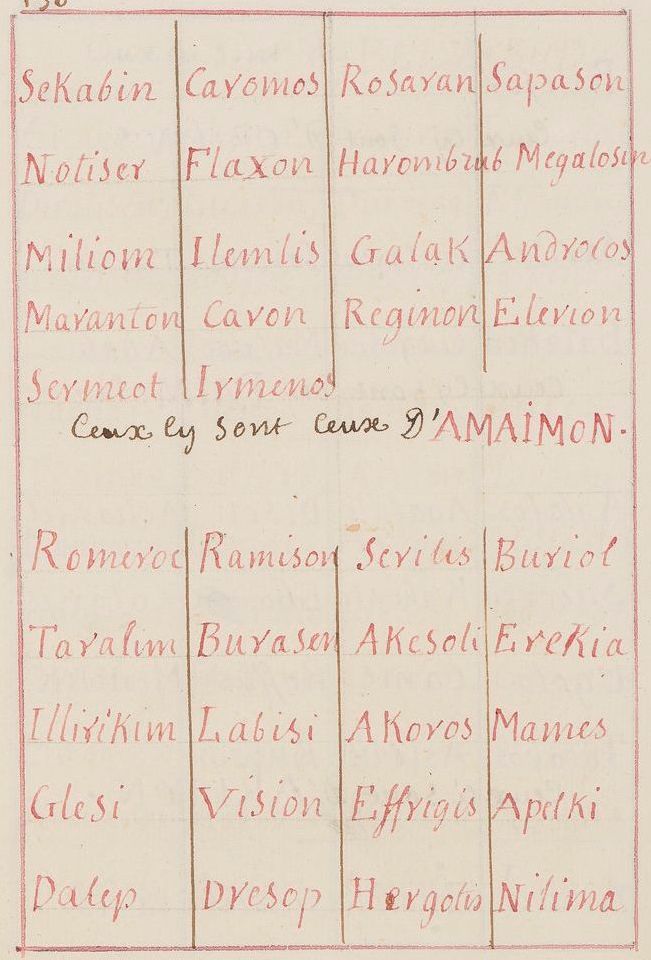 Sekabin Caromos Rosaran Sapason
Notiser Flaxon Harombrub Megalosin
Miliom Ilemlis Galak Androcos
Maranton Caron Reginon Elerion
Sermeot Irmenos
Ceux cy sont ceux D'AMAIMON.
Romeroc Ramison Scrilis Buriol
Taralim Burasen Akesoli Erekia
Illirikim Labisi Akoros Mames
Glesi Vision Effrigis Apelki
Dalep Dresop Hergotis Nilima